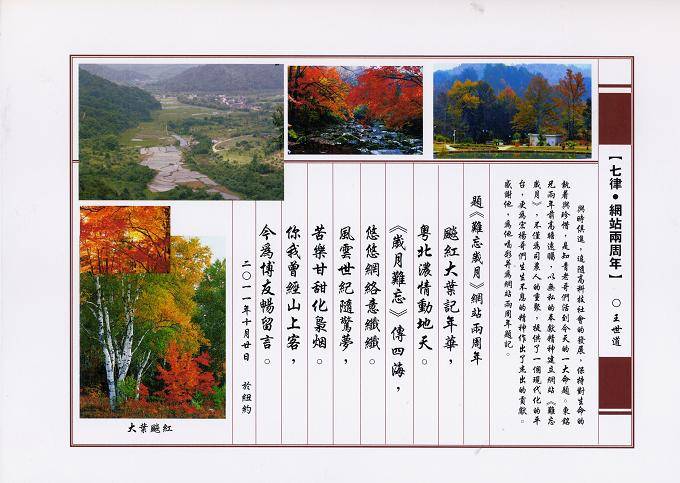 【七律•網站兩周年】
○王世道
與時俱進，追隨高科技社會的發展，保持對生命的
執着與珍惜，是知青老哥們活到今天的一大命題。東銘
兄兩年前高瞻遠矚，以無私的奉獻精神建立網站《難忘
歲月》，不僅為司裘人的重聚，提供了一個現代化的平
台，更為宏楊哥們生生不息的精神作出了杰出的貢獻。
感謝他，為他喝彩并為網站兩周年題記。
題《難忘歲月》網站兩周年
飈紅大葉記年華，
粵北濃情動地天。
《歲月難忘》傳四海，
悠悠網絡意纖纖。
風雲世紀隨驚夢，
苦樂甘甜化梟烟。
你我曾經山上客，
今為博友暢留言。
二〇一一年十月廿日 於紐約
大葉飈紅